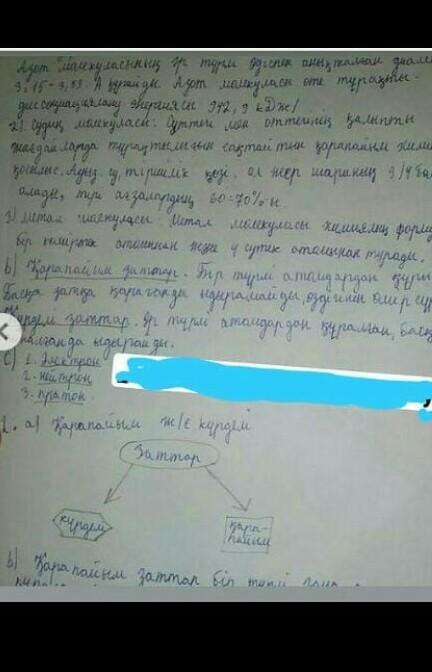 Азот молекуласының әр түрлі әдіспен анықталған диаме
3,15-3,53 А құрайды. Азот молекуласы өте тұрақты-
диссоциациялану энергиясы 942,9 кДж/
2) Судың молекуласы: Сутегі мен оттегінің қалыпты
жағдайларда тұрақтылығын сақтайтын қарапайым химия
қосылыс. Ауыз су, тіршілік көзі, ол жер шарының 3/4 бө
алады, тірі ағзалардың 60-70%-ы.
3) Метан молекуласы: Метан молекуласы химиялық форму
бір көміртек атомынан және 4 сутек атомынан тұрады.
b) Қарапайым заттар. Бір түрлі атомдардан құры
Басқа затқа қарағанда ыдырамайды, өздігінен өмір сүр
Күрделі заттар. Әр түрлі атомдардан құралған, басқ
ыдырайды.
c) 1. Электрон
2. нейтрон
3. пратон.
2. a) Қарапайым ж/е күрделі
Заттар
күрделі
қара-
пайым
b) Қарапайым заттар бір түрлі